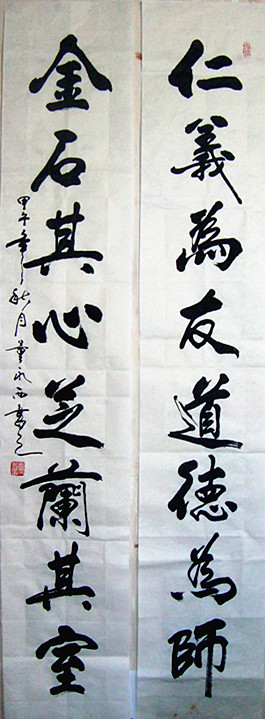 仁義為友道德為師
金石其心芝蘭其室
甲午年秋月董永西書